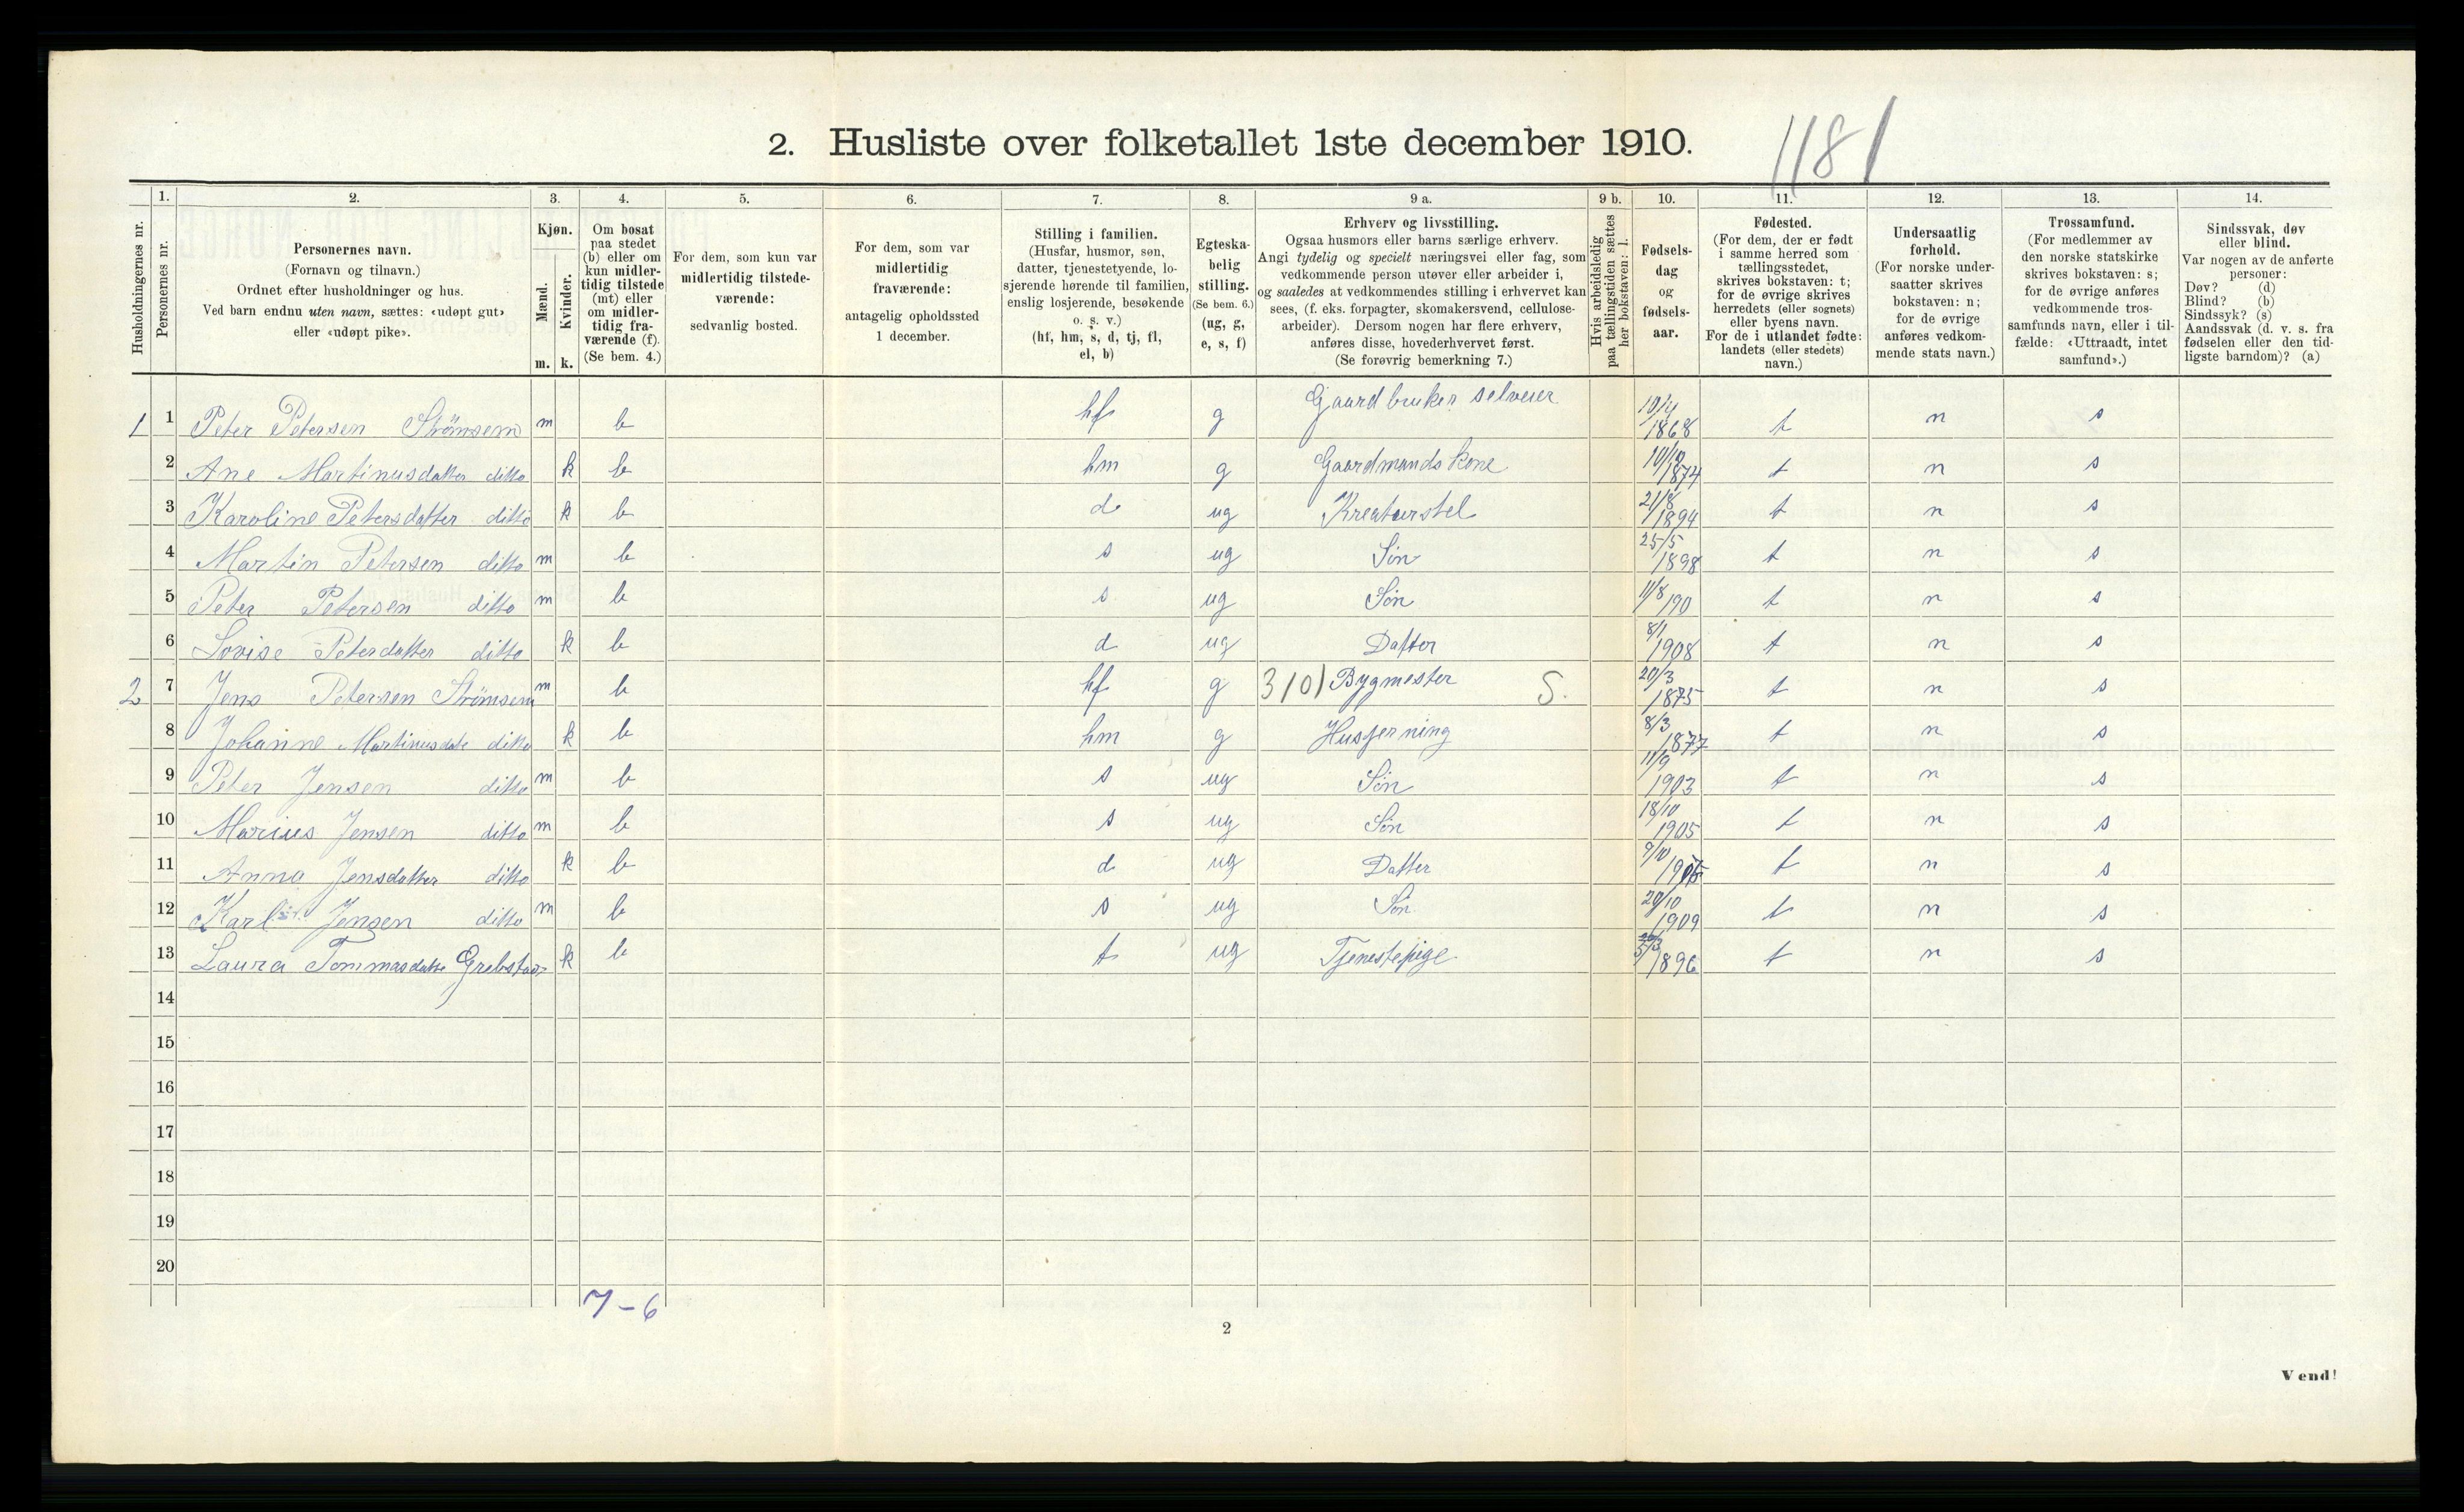 2. Husliste over folketallet 1ste december 1910.
1181
Husholdningernes nr.
1. Personernes nr.
2. Personernes navn. (Fornavn og tilnavn.) Ordnet efter husholdninger og hus. Ved barn endnu uten navn, sættes: «udøpt gut» eller «udøpt pike».
3. Kjøn. Mænd. m. Kvinder. k.
4. Om bosat paa stedet (b) eller om kun midlertidig tilstede (mt) eller om midlertidig fraværende (f). (Se bem. 4.)
5. For dem, som kun var midlertidig tilstedeværende: sedvanlig bosted.
6. For dem, som var midlertidig fraværende: antagelig opholdssted 1 december.
7. Stilling i familien. (Husfar, husmor, søn, datter, tjenestetyende, losjerende hørende til familien, enslig losjerende, besøkende o. s. v.) (hf, hm, s, d, tj, fl, el, b)
8. Egteskabelig stilling. (Se bem. 6.) (ug, g, e, s, f)
9 a. Erhverv og livsstilling. Ogsaa husmors eller barns særlige erhverv. Angi tydelig og specielt næringsvei eller fag, som vedkommende person utøver eller arbeider i, og saaledes at vedkommendes stilling i erhvervet kan sees, (f. eks. forpagter, skomakersvend, cellulosearbeider). Dersom nogen har flere erhverv, anføres disse, hovederhvervet først. (Se forøvrig bemerkning 7.)
9 b. Hvis arbeidsledig paa tællingstiden sættes her bokstaven: l.
10. Fødselsdag og fødselsaar.
11. Fødested. (For dem, der er født i samme herred som tællingsstedet, skrives bokstaven: t; for de øvrige skrives herredets (eller sognets) eller byens navn. For de i utlandet fødte: landets (eller stedets) navn.)
12. Undersaatlig forhold. (For norske undersaatter skrives bokstaven: n; for de øvrige anføres vedkommende stats navn.)
13. Trossamfund. (For medlemmer av den norske statskirke skrives bokstaven: s; for de øvrige anføres vedkommende trossamfunds navn, eller i tilfælde: «Uttraadt, intet samfund».)
14. Sindssvak, døv eller blind. Var nogen av de anførte personer: Døv? (d) Blind? (b) Sindssyk? (s) Aandssvak (d. v. s. fra fødselen eller den tidligste barndom)? (a)
1 1 Peter Petersen Strömsem m b hf g Gaardbruker selveier 10/4 1868 t n s
2 Ane Martinusdatter ditto k b hm g Gaardmands kone 10/12 1874 t n s
3 Karoline Petersdatter ditto k b d ug Kreaturstel 21/8 1894 t n s
4 Martin Petersen ditto m b s ug Søn 25/5 1898 t n s
5 Peter Petersen ditto m b s ug Søn 11/8 190 t n s
6 Lovise Petersdatter ditto k b d ug Datter 8/1 1908 t n s
2 7 Jens Petersen Strömsem m b hf g 3101 Bygmester S. 20/3 1875 t n s
8 Johanne Martinusdatr ditto k b hm g Husgerning 8/3 1877 t n s
9 Peter Jensen ditto m b s ug Søn 11/9 1903 t n s
10 Marius Jensen ditto m b s ug Søn 18/10 1905 t n s
11 Anna Jensdatter ditto k b d ug Datter 9/10 t n s
12 Karl Jensen ditto m b s ug Søn 20/10 1909 t n s
13 Laura Tommasdatter Grebstad k b t ug Tjenestepige 1896 t n s
14
15
16
17
18
19
20
7 - 6
2
Vend!